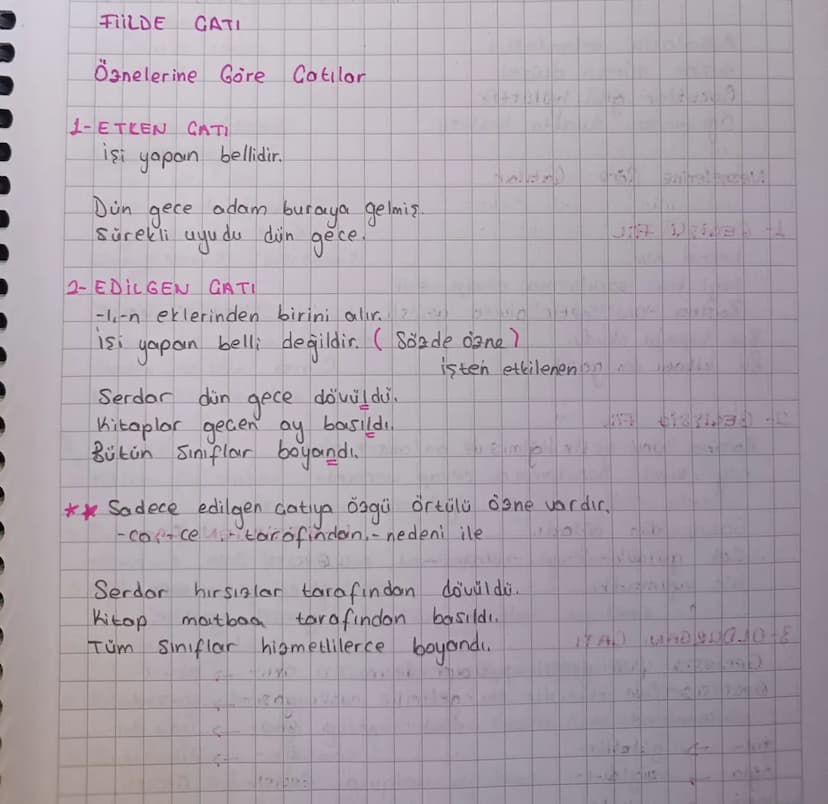 FİİLDE ÇATI
Öznelerine Göre Çatılar
1- ETKEN ÇATI
işi yapan bellidir.
Dün gece adam buraya gelmiş.
Sürekli uyudu dün gece.
2- EDİLGEN ÇATI
-l,-n eklerinden birini alır.
İşi yapan belli değildir. (Sözde özne)
işten etkilenen
Serdar dün gece dövüldü.
Kitaplar geçen ay basıldı.
Bütün sınıflar boyandı.
** Sadece edilgen çatıya özgü örtülü özne vardır.
-ca,-ce,- tarafından,- nedeni ile
Serdar hırsızlar tarafından dövüldü.
Kitap matbaa tarafından basıldı.
Tüm sınıflar hizmetlilerce boyandı.